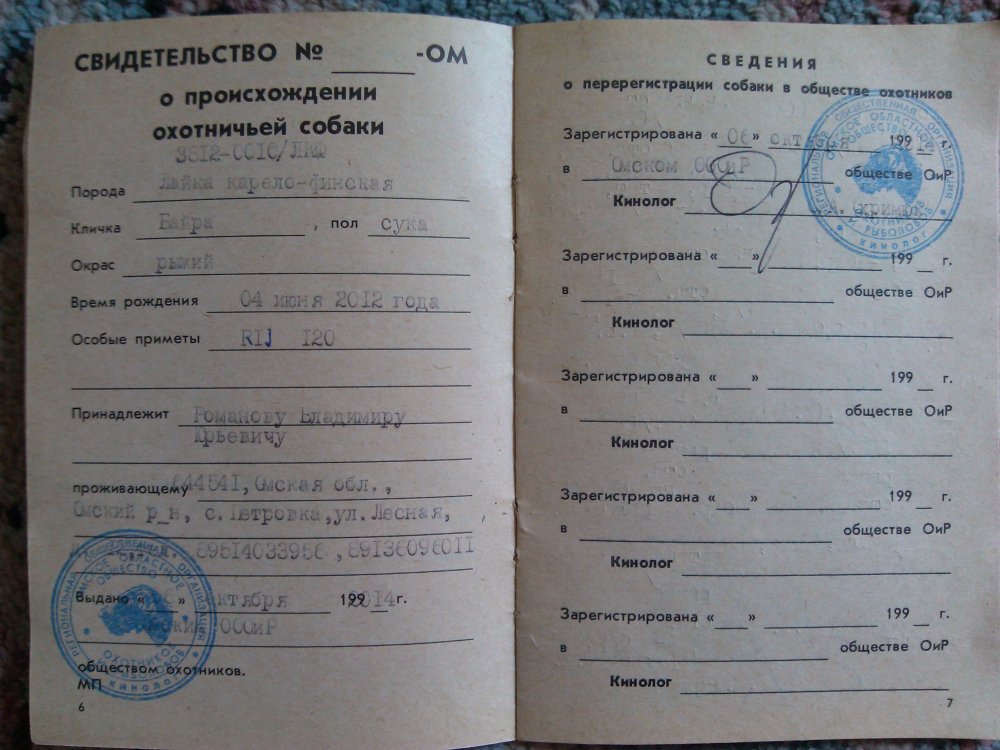 СВИДЕТЕЛЬСТВО № -ОМ
о происхождении
охотничьей собаки
3812-0010/ЛКФ
Порода Лайка карело-финская
Кличка Байра , пол сука
Окрас рыжий
Время рождения 04 июня 2012 года
Особые приметы RIJ 120
Принадлежит Романову Владимиру
Юрьевичу
проживающему 644541, Омская обл.,
Омский р_н, с. Петровка, ул. Лесная,
89514033956 , 89136096011
Выдано « » октября 199 2014 г.
ООиР
обществом охотников.
МП
6
РЕГИОНАЛЬНАЯ ОБЩЕСТВЕННАЯ ОРГАНИЗАЦИЯ
ОМСКОЕ ОБЛАСТНОЕ
ОБЩЕСТВО
ОХОТНИКОВ
И РЫБОЛОВОВ
КИНОЛОГ
СВЕДЕНИЯ
о перерегистрации собаки в обществе охотников
Зарегистрирована « 06 » 199
в Омском ОООиР обществе ОиР
Кинолог
РЕГИОНАЛЬНАЯ ОБЩЕСТВЕННАЯ ОРГАНИЗАЦИЯ
ОМСКОЕ ОБЛАСТНОЕ
ОБЩЕСТВО
ОХОТНИКОВ
И РЫБОЛОВОВ
КИНОЛОГ
Зарегистрирована « » 199 г.
в обществе ОиР
Кинолог
Зарегистрирована « » 199 г.
в обществе ОиР
Кинолог
Зарегистрирована « » 199 г.
в обществе ОиР
Кинолог
Зарегистрирована « » 199 г.
в обществе ОиР
Кинолог
7